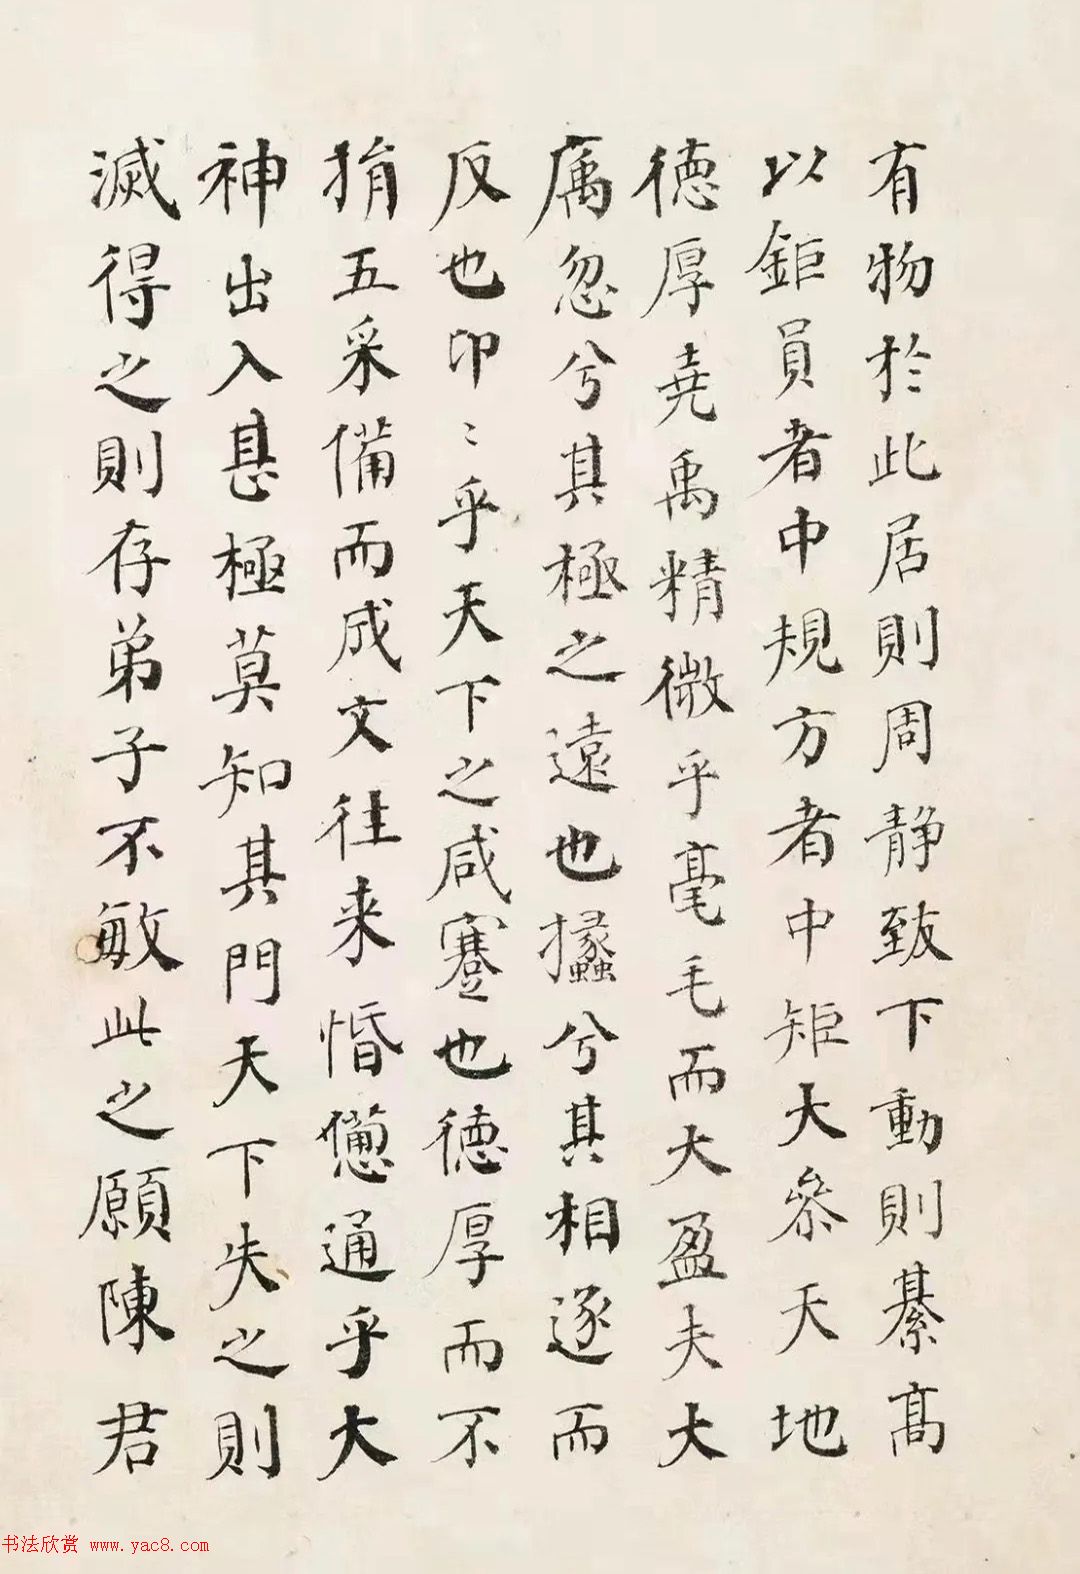 有物於此居則周静致下動則綦高
以鉅員者中規方者中矩大叅天地
德厚堯禹精微乎毫毛而大盈夫大
厲忽兮其極之遠也攭兮其相逐而
反也卬〻乎天下之咸蹇也德厚而不
捐五采備而成文往来惛憊通乎大
神出入甚極莫知其門天下失之則
滅得之則存弟子不敏此之願陳君
书法欣赏 www.yac8.com